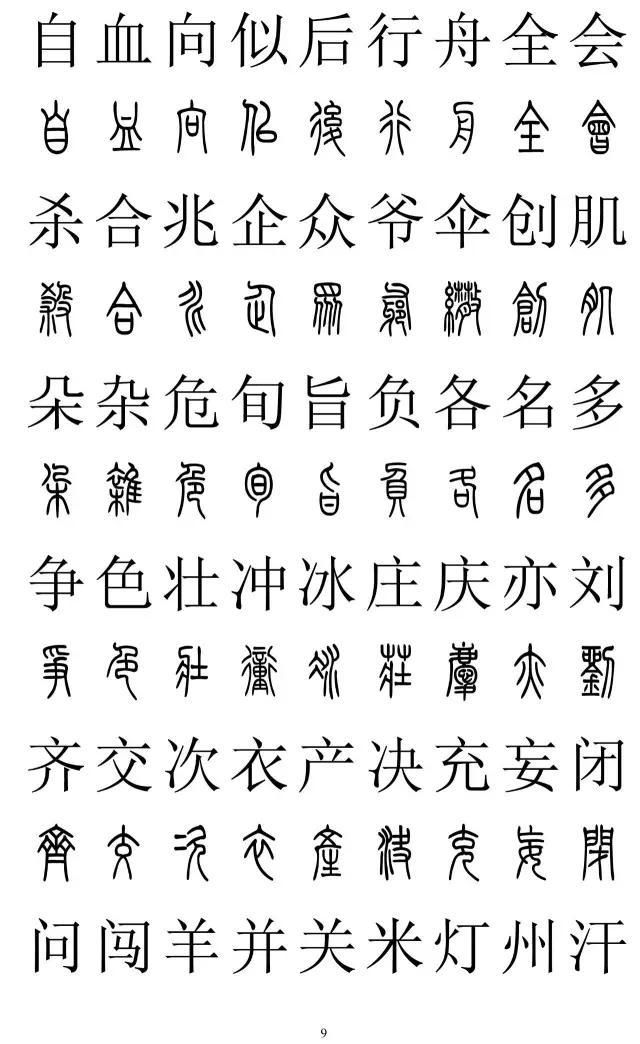 自血向似后行舟全会
自血向佀後行舟全會
杀合兆企众爷伞创肌
殺合兆企眾創肌
朵杂危旬旨负各名多
朵雜危旬旨負各名多
争色壮冲冰庄庆亦刘
爭色壯衝冰莊亦劉
齐交次衣产决充妄闭
齊交次衣產決充妄閉
问闯羊并关米灯州汗
9